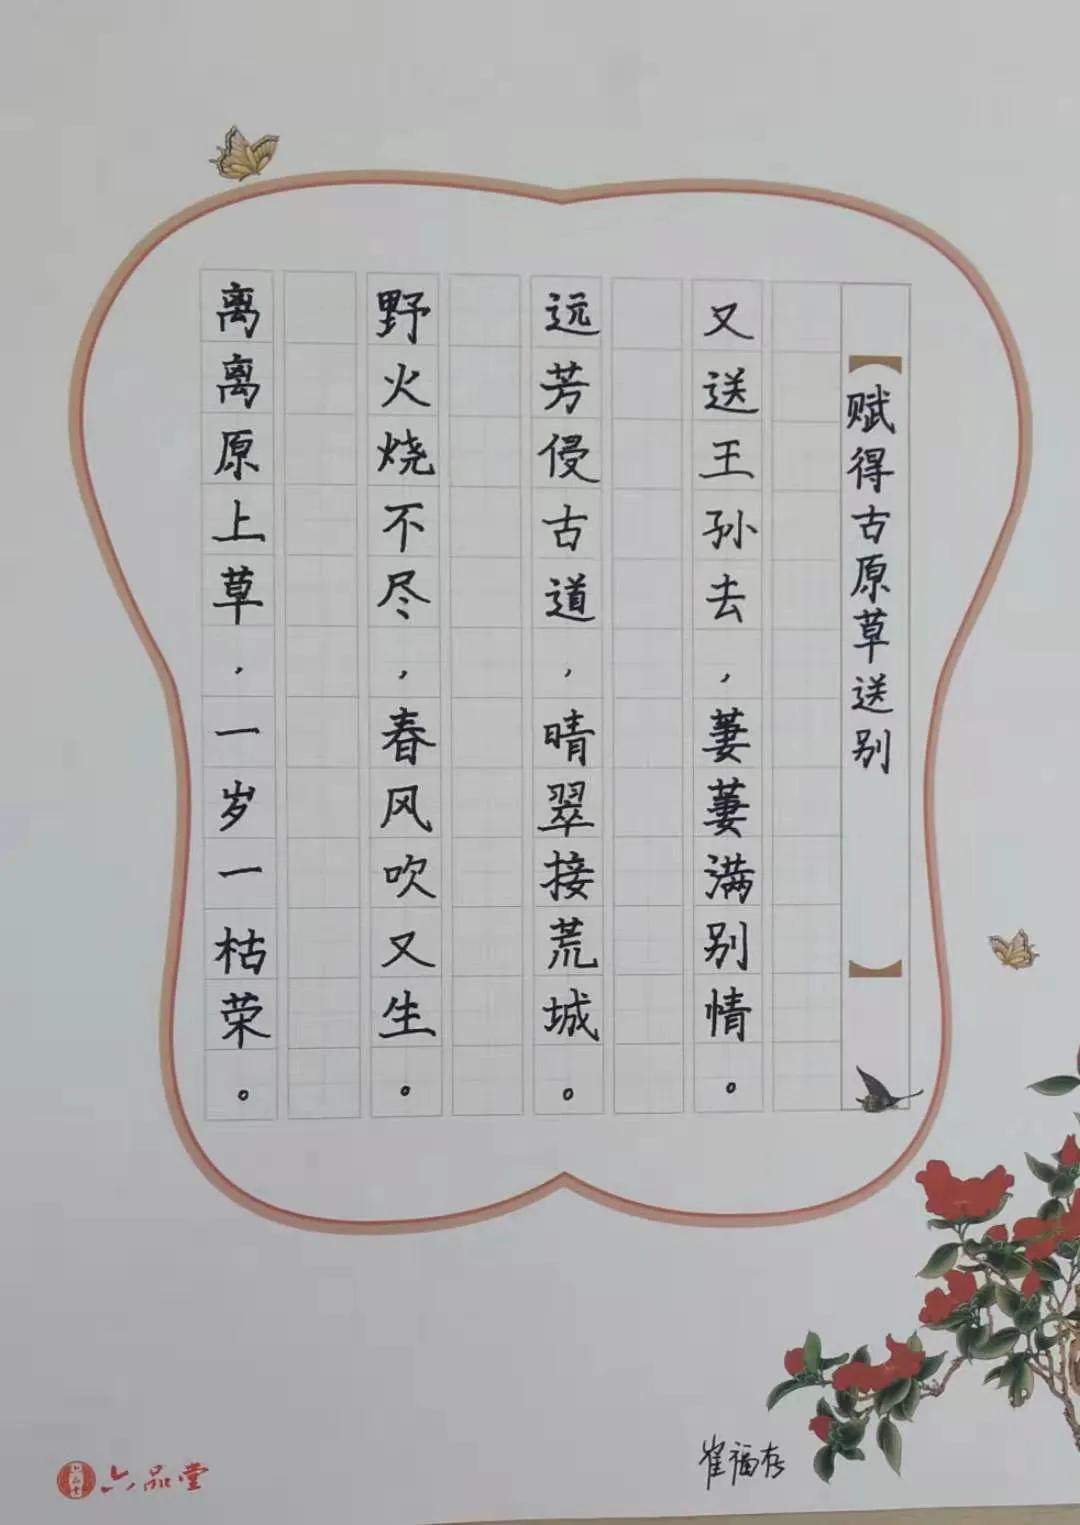 赋得古原草送别
离离原上草,一岁一枯荣。
野火烧不尽,春风吹又生。
远芳侵古道,晴翠接荒城。
又送王孙去,萋萋满别情。
崔福存
六品堂